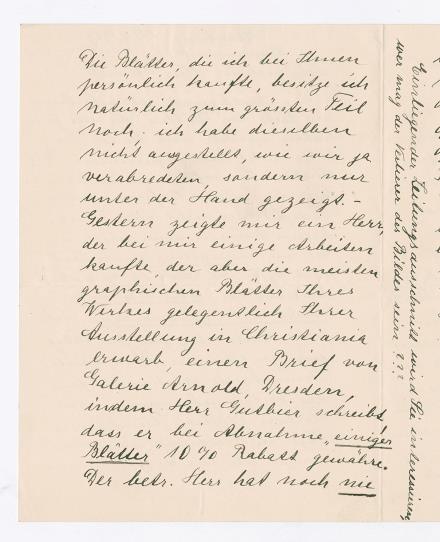 Die Blätter, die ich bei Ihnen
persönlich kaufte, besitze ich
natürlich zum grössten Teil
noch. ich habe dieselben
nicht ausgestellt, wie wir ja
verabredeten, sondern nur
unter der Hand gezeigt. –
Gestern zeigte mir ein Herr,
der bei mir einige Arbeiten
kaufte, der aber die meisten
graphischen Blätter Ihres
Werkes gelegentlich Ihrer
Ausstellung in Christiania
erwarb, einen Brief von
Galerie Arnold, Dresden,
indem Herr Gutbier schreibt,
dass er bei Abnahme „einiger
Blätter" 10 % Rabatt gewähre.
Der betr. Herr hat noch nie
Einliegender Zeitungsausschnitt wird Sie interessieren,
wer mag der Käufer des Bildes sein ???